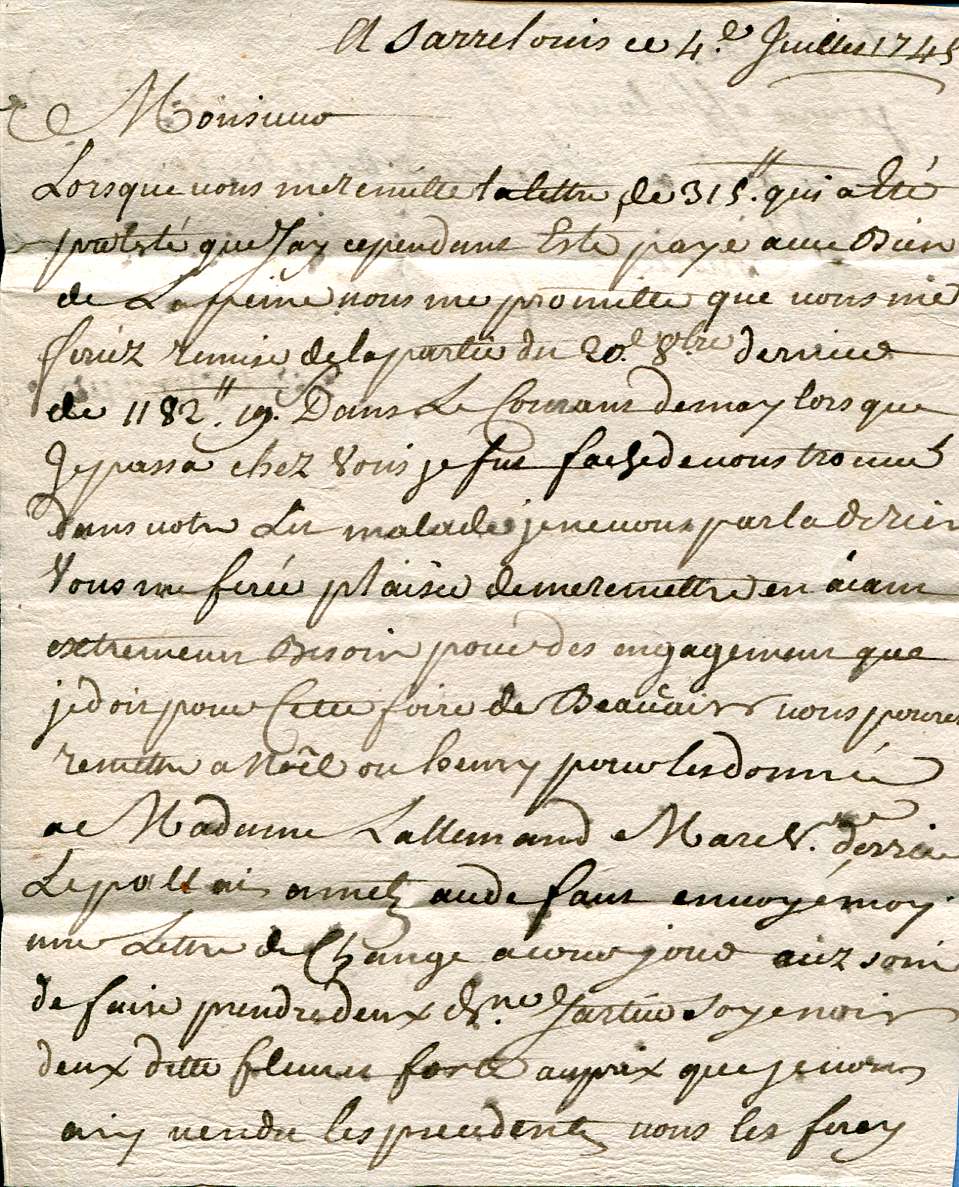 A Sarrelouis ce 4.e Juillet 1745
Monsieur
Lorsque vous me remitte la lettre de 315ʰ. qui a Eté
protesté que J'ay cependant Esté payé avec Bien
de La peine vous me promitte que vous me
feriez remise de la partie du 20.e 8bre dernier
de 1182ʰ. 19. Dans Le Courant de may lorsque
Je passa chez Vous je fut faché de vous trouvé
dans votre Lit malade je ne vous parla de rien
Vous me ferée plaisir de me remettre en aiant
extremement Besoin pour des engagement que
je doit pour Cette foire de Beaucair vous pouves
remettre a Noël ou henry pour les donné
a Madame Lallemand Marc.de derrier
Le pallais a metz au defaut envoyé moy
une Lettre de Change a cour jour aiez soin
de faire prendre deux Jartier Soye noir
deux ditte fleuret forte au prix que je vous
ai vendu les precedente vous les ferez